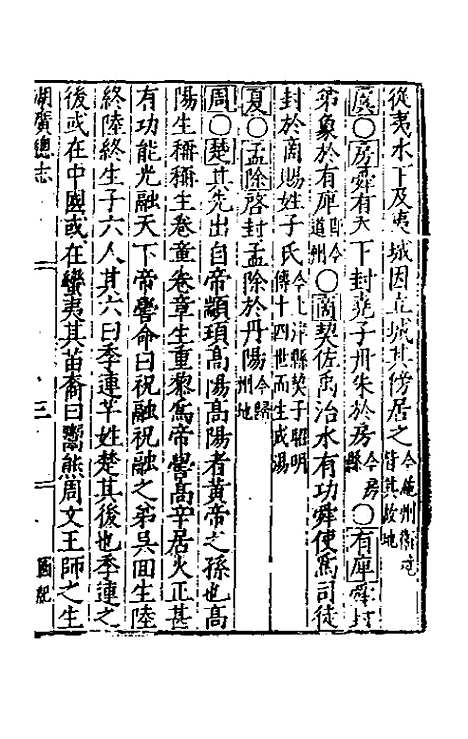 從夷水下及夷城因立城其傍居之今施州衛
皆其故地
虞○房舜有天下封堯子丹朱於房今房
縣○有庳舜封
弟象於有庳今
道州○商契佐禹治水有功舜使爲司徒
封於商賜姓子氏今上津縣契子昭明
傳十四世而生成湯
夏○孟除啓封孟除於丹陽今歸
州地
周○楚其先出自帝顓頊高陽高陽者黃帝之孫也高
陽生稱稱生卷章卷章生重黎爲帝嚳高辛居火正甚
有功能光融天下帝嚳命曰祝融祝融之弟吳回生陸
終陸終生子六人其六曰季連羋姓楚其後也季連之
後或在中國或在蠻夷其苗裔曰鬻熊周文王師之生
湖廣總志
三
國紀